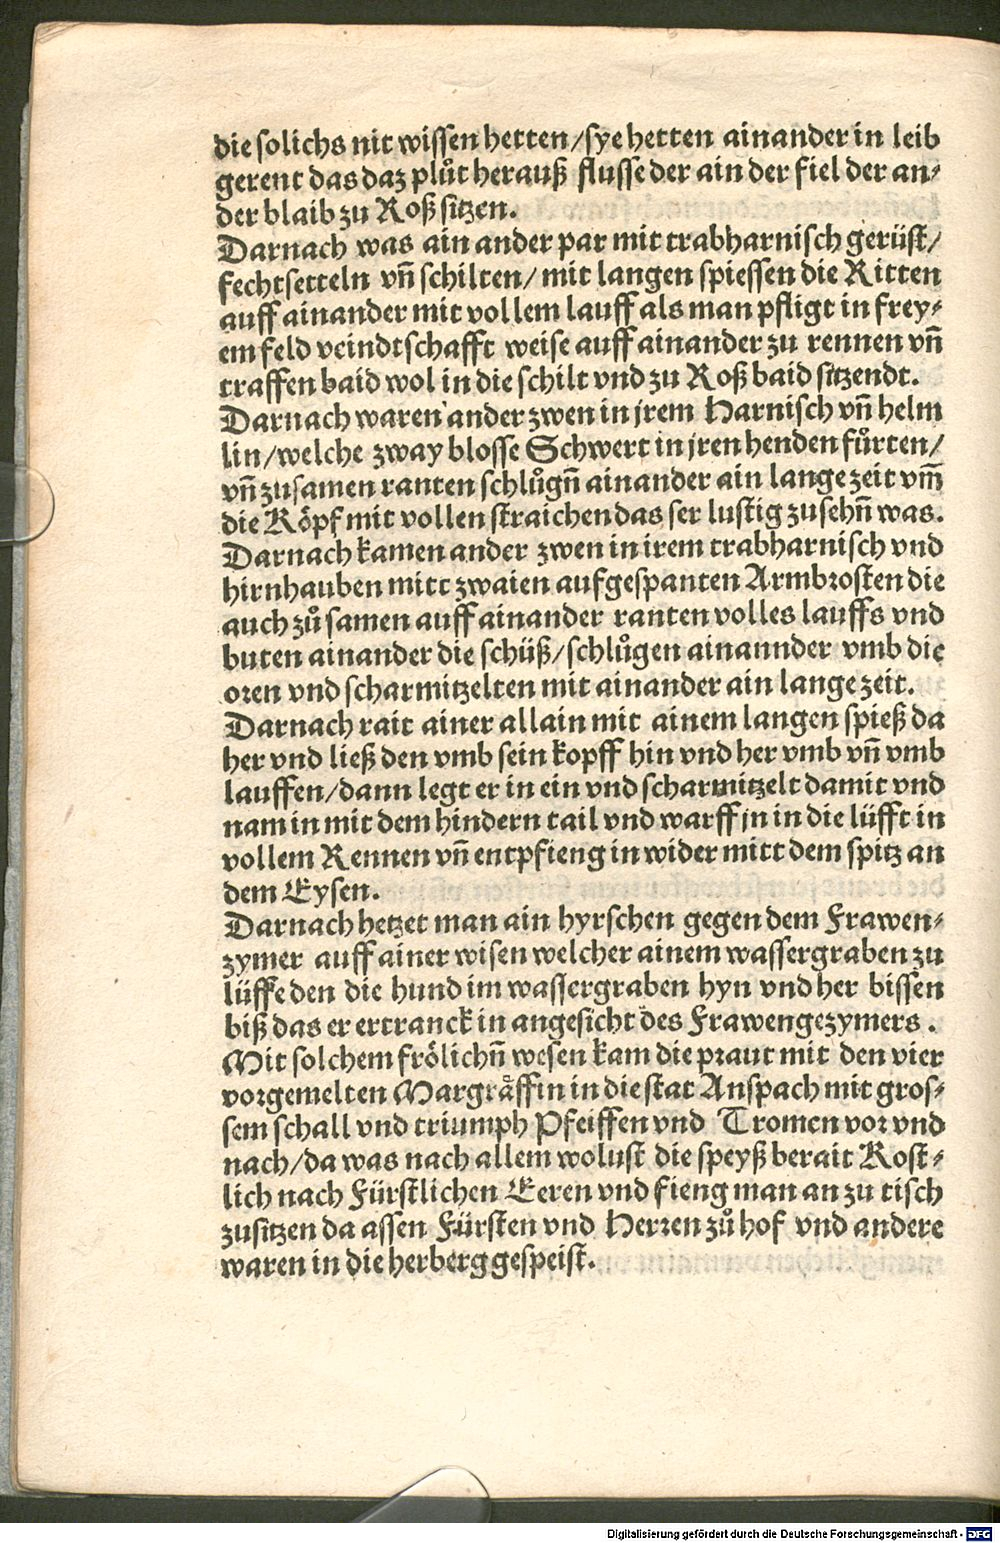 die solichs nit wissen hetten/sye hetten ainander in leib
gerent das daz plůt herauß flusse der ain der fiel der an⸗
der blaib zu Roß sitzen.
Darnach was ain ander par mit trabharnisch gerüst/
fechtsetteln vñ schilten/mit langen spiessen die Ritten
auff ainander mit vollem lauff als man pfligt in frey⸗
em feld veindtschafft weise auff ainander zu rennen vñ
traffen baid wol in die schilt vnd zu Roß baid sitzendt.
Darnach waren ander zwen in jrem Harnisch vñ helm
lin/welche zway blosse Schwert in jren henden fůrten/
vñ zusamen ranten schlůgñ ainander ain lange zeit vm̃
die Köpf mit vollen straichen das ser lustig zusehñ was.
Darnach kamen ander zwen in irem trabharnisch vnd
hirnhauben mitt zwaien aufgespanten Armbrosten die
auch zů samen auff ainander ranten volles lauffs vnd
buten ainander die schüß/schlůgen ainannder vmb die
oren vnd scharmitzelten mit ainander ain lange zeit.
Darnach rait ainer allain mit ainem langen spieß da
her vnd ließ den vmb sein kopff hin vnd her vmb vñ vmb
lauffen/dann legt er in ein vnd scharmitzelt damit vnd
nam in mit dem hindern tail vnd warff jn in die lüfft in
vollem Rennen vñ entpfieng in wider mitt dem spitz an
dem Eysen.
Darnach hetzet man ain hyrschen gegen dem Frawen⸗
zymer auff ainer wisen welcher ainem wassergraben zu
lüffe den die hund im wassergraben hyn vnd her bissen
biß das er ertranck in angesicht des Frawengezymers.
Mit solchem frölichñ wesen kam die praut mit den vier
vorgemelten Margräffin in die stat Anspach mit gros⸗
sem schall vnd triumph Pfeiffen vnd Tromen vor vnd
nach/da was nach allem wolust die speyß berait Kost⸗
lich nach Fürstlichen Eeren vnd fieng man an zu tisch
zusitzen da assen Fürsten vnd Herren zů hof vnd andere
waren in die herberg gespeist.
Digitalisierung gefördert durch die Deutsche Forschungsgemeinschaft - DFG